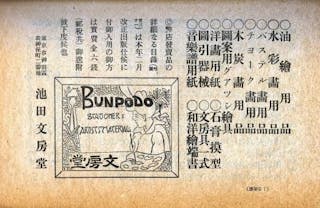 油繪用品
水彩畫用品
パステル畫用品
チョーク畫用品
木炭畫用品
圖案用グアッシュ繪具
洋畫用紙 ◯石膏摸型
圖引器械 ◯文房具一式
音樂譜用紙 ◯和洋繪端書
◎弊店發賣品の
詳細なる目錄
は本年二月
改正出版仕候に
付御入用の御方
は實費金六錢
(郵税共)御送附
被下度候也
BUNPODO
STATIONER &
ARTISTS MATERIAL
堂房文
東京市神田區
池田文房堂